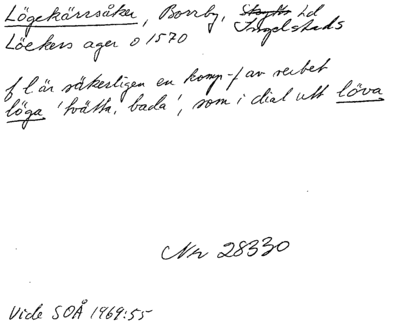 Lögekärrsåker, Borrby, Ingelstads hd
Löekers ager o 1570
f l är säkerligen en komp-f av verbet
löga 'tvätta, bada', som i dial utt löva
Nr 28330
Vide SOÅ 1969:55